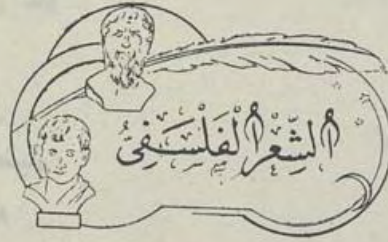 الشِّعْرُ الْفَلْسَفِيُّ